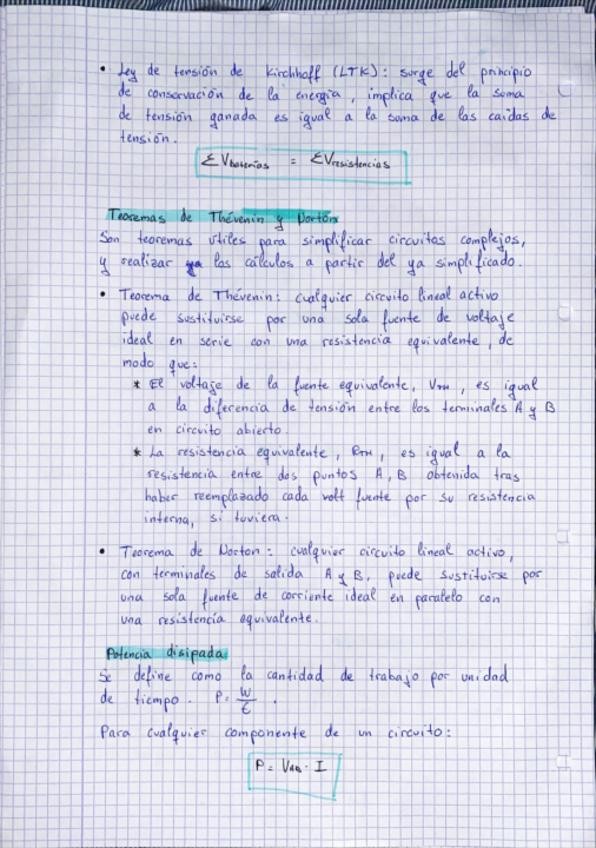 • Ley de tensión de Kirchhoff (LTK): surge del principio
de conservación de la energía, implica que la suma
de tensión ganada es igual a la suma de las caídas de
tensión.
ΣVbaterías = ΣVresistencias
Teoremas de Thévenin y Norton
Son teoremas útiles para simplificar circuitos complejos,
y realizar los cálculos a partir del ya simplificado.
• Teorema de Thévenin: cualquier circuito lineal activo
puede sustituirse por una sola fuente de voltaje
ideal en serie con una resistencia equivalente, de
modo que:
* El voltaje de la fuente equivalente, VTH, es igual
a la diferencia de tensión entre los terminales A y B
en circuito abierto.
* La resistencia equivalente, RTH, es igual a la
resistencia entre dos puntos A, B obtenida tras
haber reemplazado cada volt fuente por su resistencia
interna, si tuviera.
• Teorema de Norton: cualquier circuito lineal activo,
con terminales de salida A y B, puede sustituirse por
una sola fuente de corriente ideal en paralelo con
una resistencia equivalente.
Potencia disipada
Se define como la cantidad de trabajo por unidad
de tiempo. P = W/t.
Para cualquier componente de un circuito:
P = VAB · I